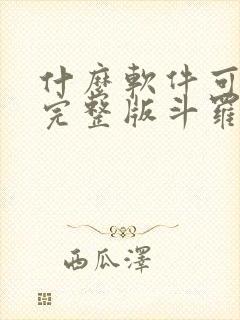 什麼軟件可
完整版斗羅
西瓜澤